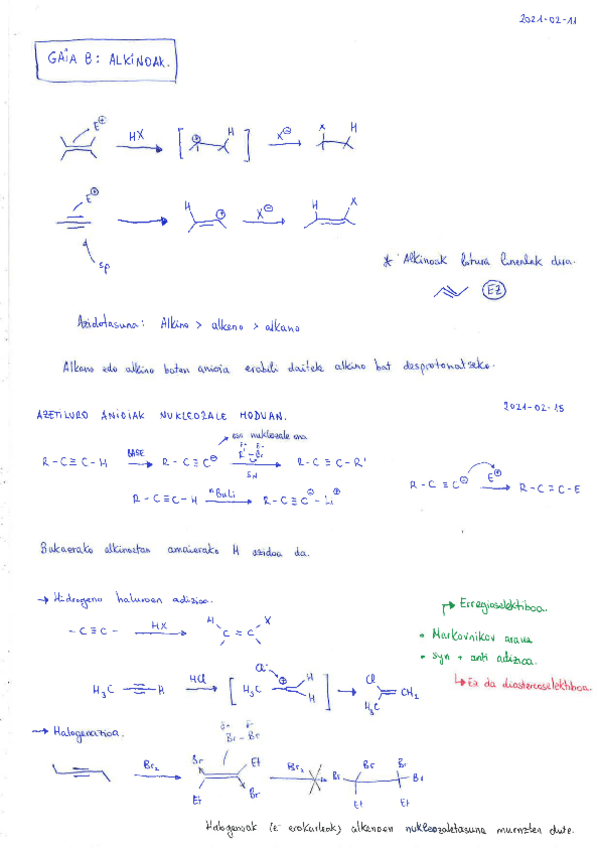 2021-02-11
GAIA 8: ALKINOAK.
E⊕
HX
H
X⊖
X H
E⊕
H
X⊖
H X
sp
* Alkinoak lotura linealak dira.
EZ
Azidotasuna: Alkino > alkeno > alkano
Alkano edo alkino baten anioia erabili daiteke alkino bat desprotonatzeko.
2021-02-15
AZETILURO ANIOIAK NUKLEOZALE MODUAN.
nukleozale ona
R-C≡C-H BASE R-C≡C⊖ R'-Br SN R-C≡C-R'
R-C≡C⊖ E⊕ R-C≡C-E
R-C≡C-H nBuLi R-C≡C⊖-Li⊕
Bukaerako alkinoetan amaierako H azidoa da.
→ Hidrogeno haluroen adizioa.
Erregioselektiboa.
-C≡C- HX H C=C X
• Markovnikov araua
• syn + anti adizioa.
Ez da diastereoselektiboa.
H3C H HCl H3C Cl⊖ ⊕ H H Cl H3C CH2
→ Halogenazioa.
δ+ δ-
Br-Br
Br2 Br Et Et Br Br2 Br Br Br Br Et Et
Halogenoak (e⁻ erakarleak) alkenoen nukleozaletasuna murrizten dute.